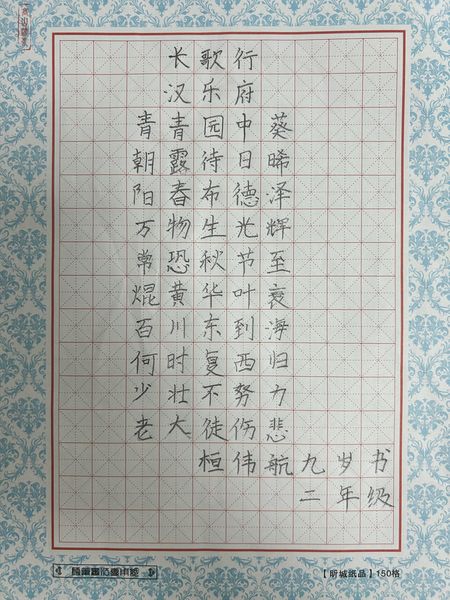 长歌行
汉乐府
青青园中葵
朝露待日晞
阳春布德泽
万物生光辉
常恐秋节至
焜黄华叶衰
百川东到海
何时复西归
少壮不努力
老大徒伤悲
桓伟航九岁书
二年级
【昕城纸品】150格